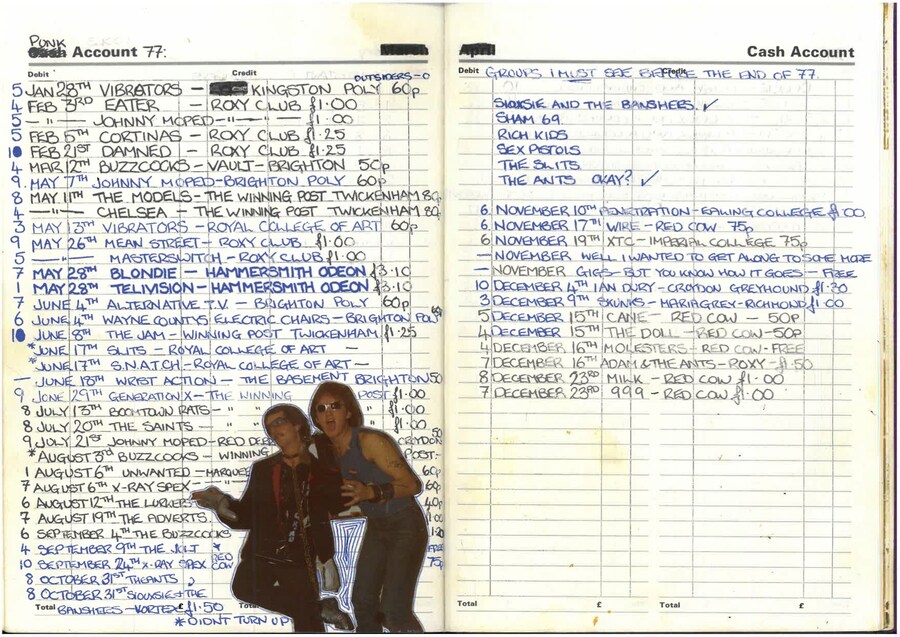 PUNK
Cash Account 77:
March
Debit
Credit
OUTSIDERS-0
5 JAN 28TH VIBRATORS - KINGSTON POLY 60p
4 FEB 3RD EATER - ROXY CLUB £1.00
5 -"- JOHNNY MOPED -"- £1.00
5 FEB 5TH CORTINAS - ROXY CLUB £1.25
10 FEB 21ST DAMNED - ROXY CLUB £1.25
4 MAR 12TH BUZZCOCKS - VAULT - BRIGHTON 50p
9 MAY 7TH JOHNNY MOPED - BRIGHTON POLY 60p
8 MAY 11TH THE MODELS - THE WINNING POST TWICKENHAM 80p
4 -"- CHELSEA - THE WINNING POST TWICKENHAM 80
3 MAY 13TH VIBRATORS - ROYAL COLLEGE OF ART 60p
9 MAY 26TH MEAN STREET - ROXY CLUB £1.00
5 -"- MASTERSWITCH - ROXY CLUB £1.00
7 MAY 28TH BLONDIE - HAMMERSMITH ODEON £3.10
1 MAY 28TH TELIVISION - HAMMERSMITH ODEON £3.10
7 JUNE 4TH ALTERNATIVE T.V. - BRIGHTON POLY 60p
6 JUNE 4TH WAYNE COUNTYS ELECTRIC CHAIRS - BRIGHTON POLY
10 JUNE 8TH THE JAM - WINNING POST TWICKENHAM £1.25
*JUNE 17TH SLITS - ROYAL COLLEGE OF ART -
*JUNE 17TH S.N.A.T.C.H - ROYAL COLLEGE OF ART -
- JUNE 18TH WRIST ACTION - THE BASEMENT BRIGHTON 50
9 JUNE 29TH GENERATION X - THE WINNING POST £1.00
8 JULY 13TH BOOMTOWN RATS - " " £1.00
8 JULY 20TH THE SAINTS - " " £1.00
9 JULY 21ST JOHNNY MOPED - RED DEE CROYDON 50
*AUGUST 3RD BUZZCOCKS - WINNING POST -
1 AUGUST 6TH UNWANTED - MARQUEE 60p
7 AUGUST 6TH X-RAY SPEX - 60p
6 AUGUST 12TH THE LURKERS 40p
7 AUGUST 19TH THE ADVERTS.
6 SEPTEMBER 4TH THE BUZZCOCKS
4 SEPTEMBER 9TH THE *
10 SEPTEMBER 24TH X-RAY SPEX RED COW 75p
8 OCTOBER 31ST THE ANTS
8 OCTOBER 31ST SIOUXSIE + THE
Total £
BANSHEES - VORTEX £1.50
*DIDNT TURN UP
April
Cash Account
Debit
Credit
GROUPS I MUST SEE BEFORE THE END OF 77.
SIOUXSIE AND THE BANSHEES. ✓
SHAM 69.
RICH KIDS
SEX PISTOLS
THE SLITS
THE ANTS OKAY? ✓
6 NOVEMBER 10TH PENETRATION - EALING COLLEGE £1.00
6 NOVEMBER 17TH WIRE - RED COW 75p
6 NOVEMBER 19TH XTC - IMPERIAL COLLEGE 75p
- NOVEMBER WELL I WANTED TO GET ALONG TO SOME MORE
- NOVEMBER GIGS - BUT YOU KNOW HOW IT GOES - FREE
10 DECEMBER 4TH IAN DURY - CROYDON GREYHOUND £1.30
3 DECEMBER 9TH SKUNKS - MARIA GREY - RICHMOND £1.00
5 DECEMBER 15TH CANE - RED COW - 50p
4 DECEMBER 15TH THE DOLL - RED COW - 50p
4 DECEMBER 16TH MOLESTERS - RED COW - FREE
7 DECEMBER 16TH ADAM & THE ANTS - ROXY - £1.50
8 DECEMBER 23RD MILK - RED COW £1.00
7 DECEMBER 23RD 999 - RED COW £1.00
Total £ Total £